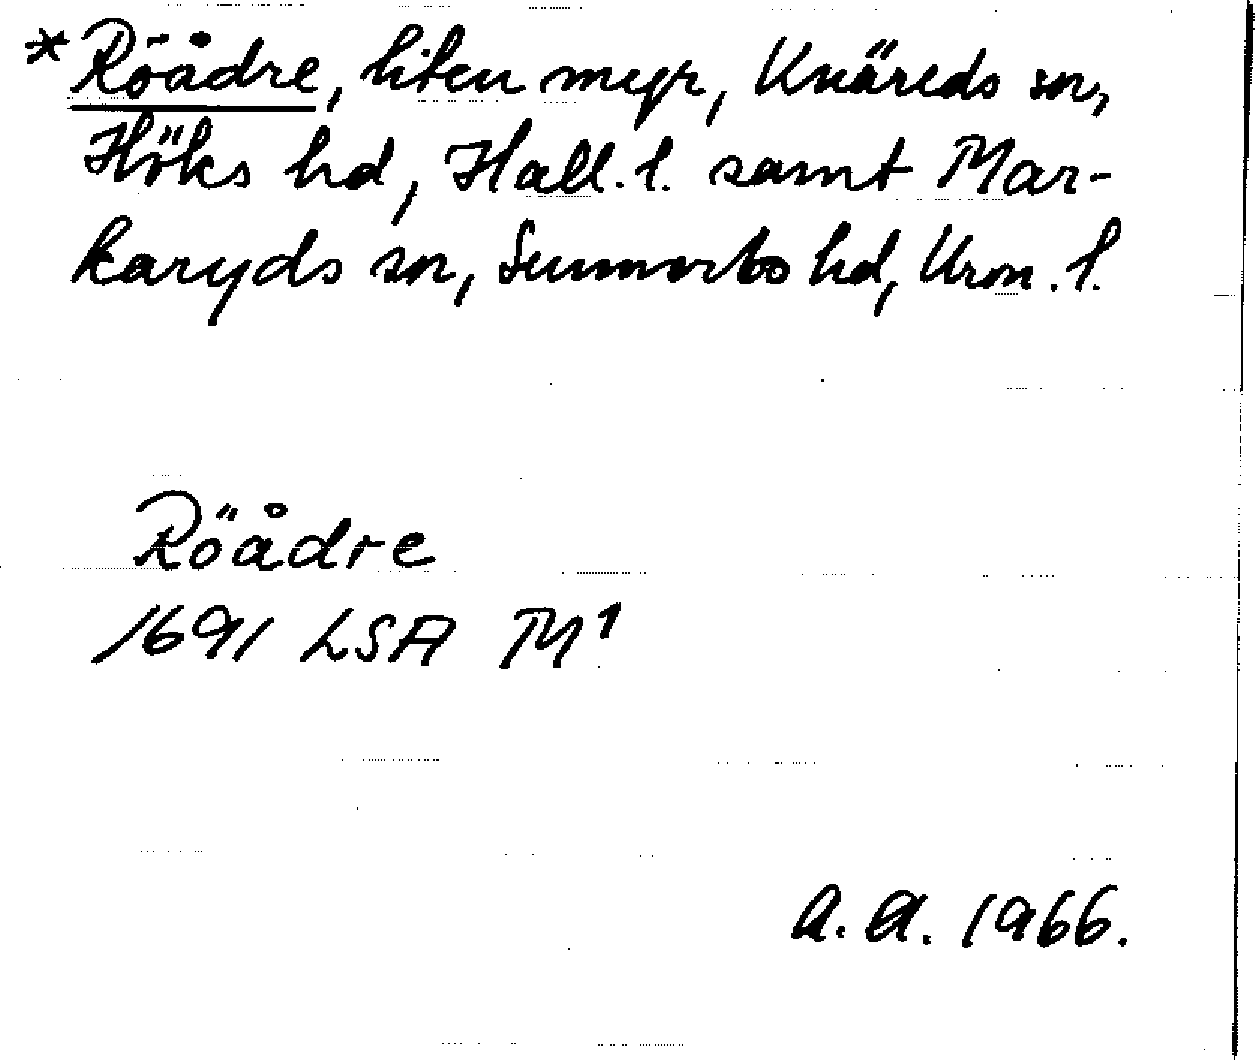 * Röådre, liten myr, Knäreds sn,
Höks hd, Hall. l. samt Mar-
karyds sn, Sunnerbo hd, Kron. l.
Röådre
1691 LSA M¹
A. A. 1966.